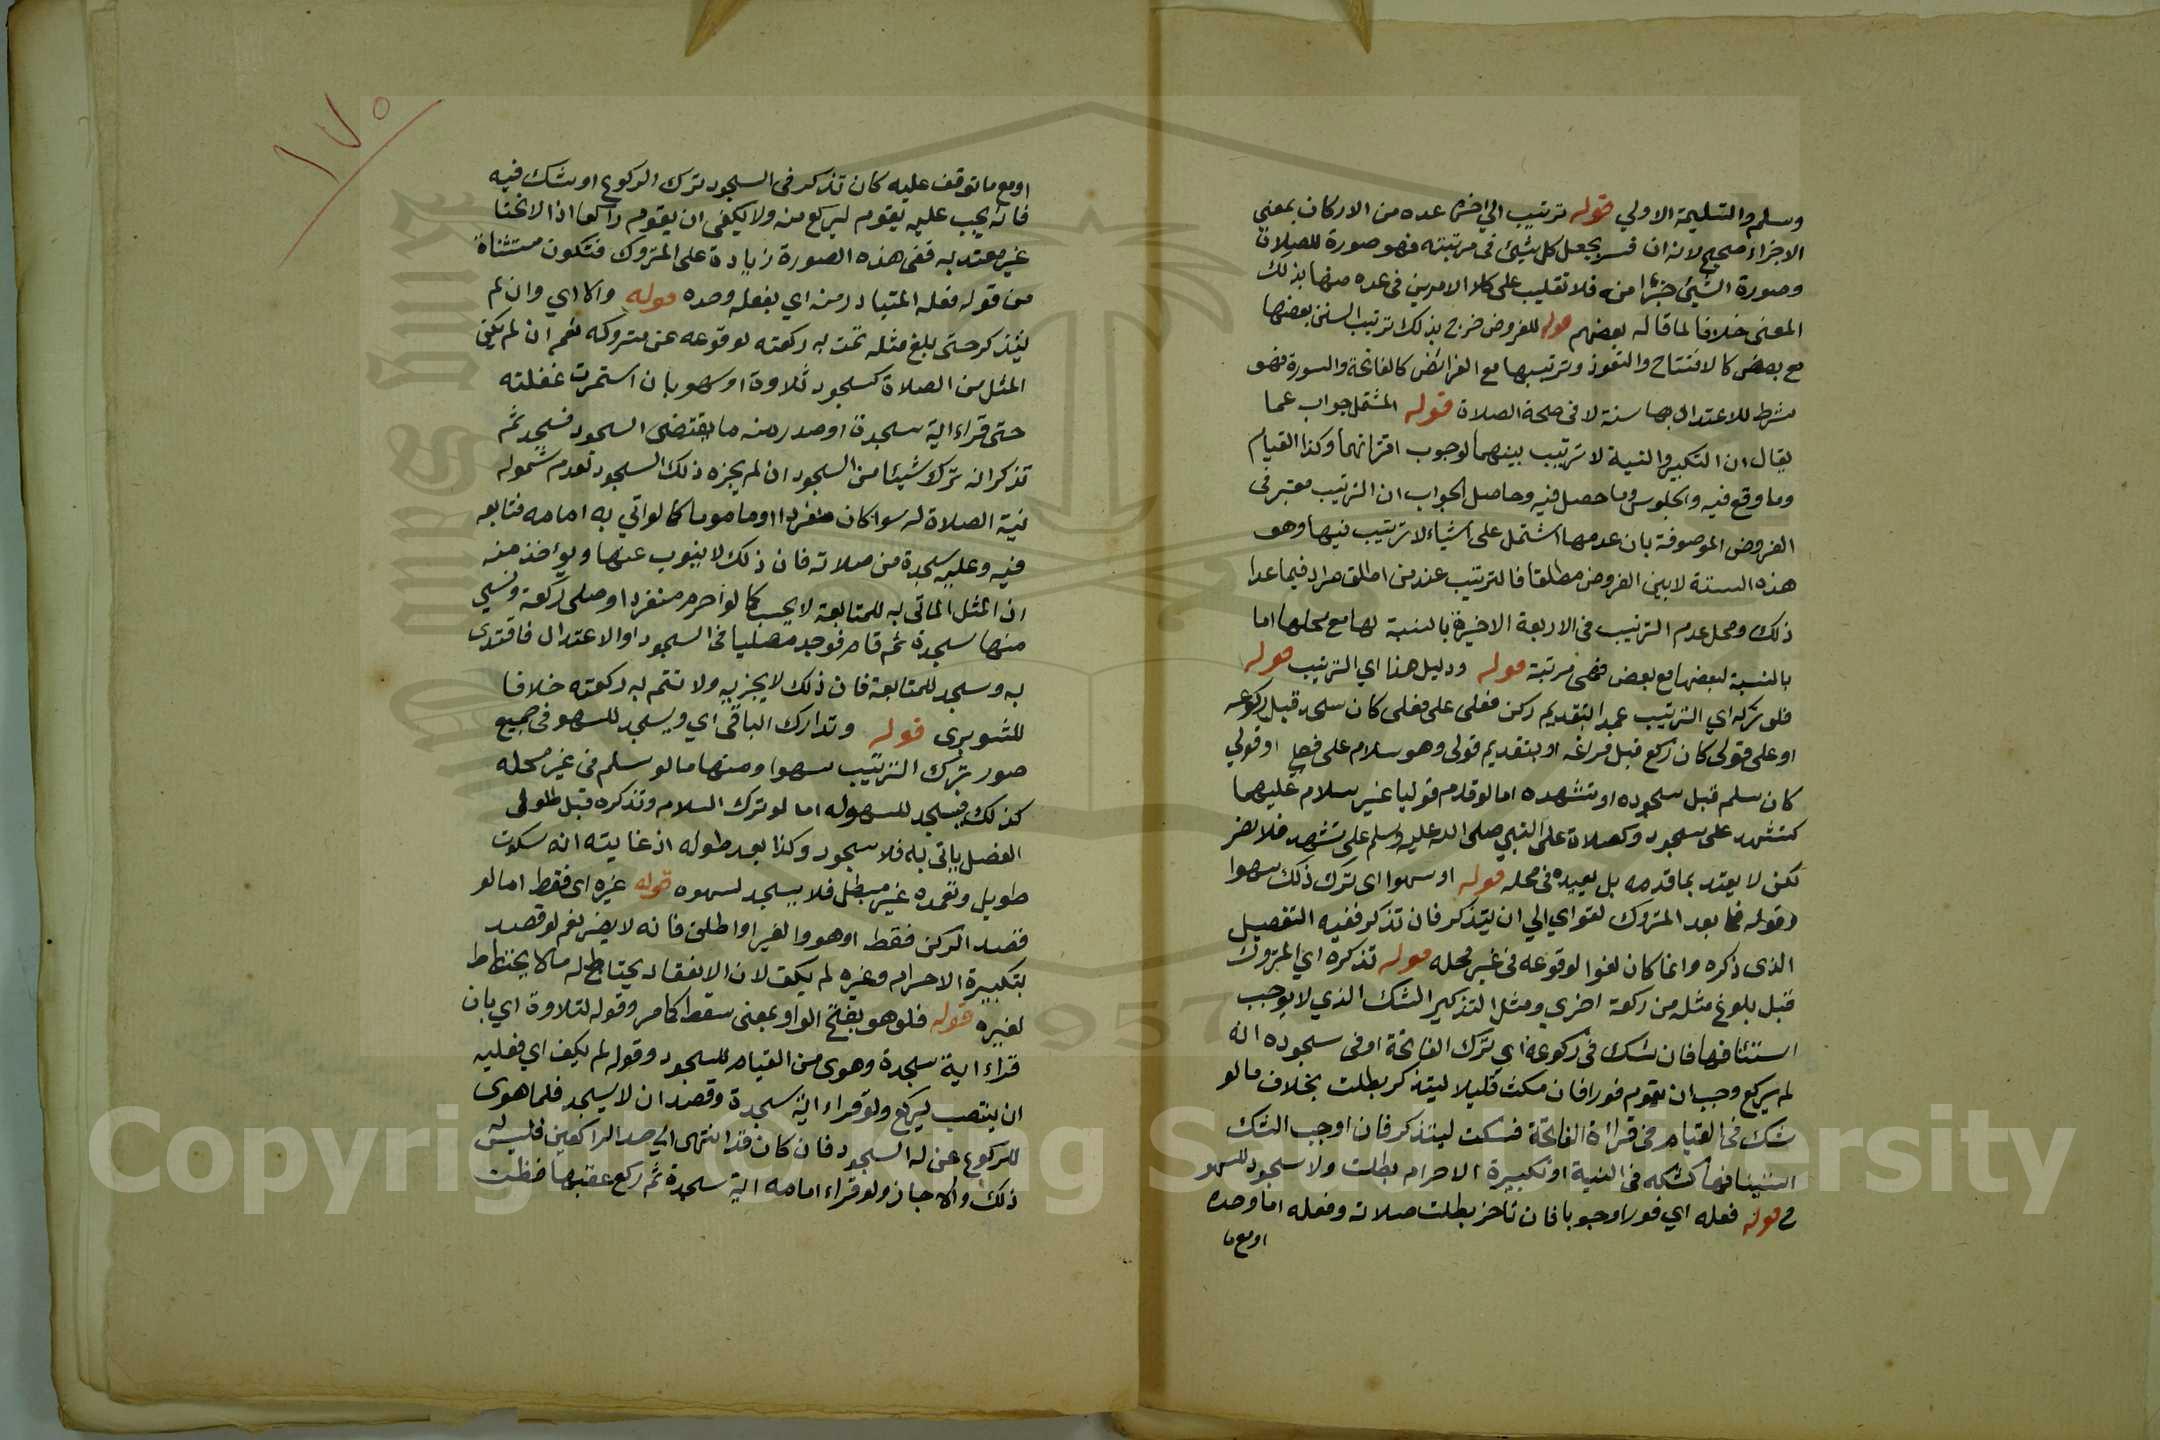 وسلم والتسليمة الاولي قوله ترتيب الي اخره عده من الاركان بمعني
الاجزاء صحيح لانه ان فسر بجعل كل شيئ في مرتبته فهو صورة للصلاة
وصورة الشيئ جزء منه فلا تغليب على كلا الامرين في عده منها بذلك
المعنى خلافا لما قاله بعضهم قوله للفروض خرج بذلك ترتيب السنن بعضها
مع بعض كالافتتاح والتعوذ وترتيبها مع الفرائض كالفاتحة والسورة فهو
شرط للاعتداد بها سنة لا في صحة الصلاة قوله المشتمل جواب عما
يقال ان التكبير والنية لا ترتيب بينهما لوجوب اقترانهما وكذا القيام
وما وقع فيه والجلوس وما حصل فيه وحاصل الجواب ان الترتيب معتبر في
الفروض الموصوفة بان عدمها اشتمل على اشياء لا ترتيب فيها وهو
هذه الستة لا بين الفروض مطلقا فالترتيب عند من اطلق مراد فيما عدا
ذلك ومحل عدم الترتيب في الاربعة الاخيرة بالنسبة لها مع محلها اما
بالنسبة لبعضها مع بعض فهي مرتبة قوله ودليل هذا اي الترتيب قوله
فلو تركه اي الترتيب عمدا بتقديم ركن فعلى على فعلى كان سجد قبل ركوعه
او على قولى كان ركع قبل فراغه او بتقديم قولى وهو سلام على فعلى او قولي
كان سلم قبل سجوده او تشهده اما لو قدم قوليا غير سلام عليهما
كتشهد على سجود وكصلاة على النبي صلى الله عليه وسلم على تشهد فلا يضر
لكن لا يعتد بما قدمه بل يعيده في محله قوله او سهوا اي ترك ذلك سهوا
وقوله فما بعد المتروك لغو اي الي ان يتذكر فان تذكر ففيه التفصيل
الذى ذكره وانما كان لغوا لوقوعه في غير محله قوله تذكره اي المتروك
قبل بلوغ مثله من ركعة اخري ومثل التذكير الشك الذي لا يوجب
استئنافها فان شك في ركوعه اي ترك الفاتحة او في سجوده انه
لم يركع وجب ان يقوم فورا فان مكث قليلا ليتذكر بطلت بخلاف ما لو
شك في القيام في قراءة الفاتحة فسكت ليتذكر فان اوجب الشك
استئنافها كشكه في النية او تكبيرة الاحرام بطلت ولا سجود للسهو
ح قوله فعله اي فورا وجوبا فان تاخر بطلت صلاته وفعله اما وحده
او مع ما
١٧٠
او مع ما توقف عليه كان تذكر في السجود ترك الركوع او شك فيه
فانه يجب عليه يقوم ليركع منه ولا يكفي ان يقوم راكعا اذ الانحنا
غير معتد به ففي هذه الصورة زيادة على المتروك فتكون مستثناة
من قوله فعله المتبادر منه اي بفعله وحده قوله والا اي وان لم
يتذكر حتى بلغ مثله تمت به ركعته لوقوعه عن متروكه نعم ان لم يكن
المثل من الصلاة كسجود تلاوة او سهو بان استمرت غفلته
حتى قراء اية سجدة او صدر منه ما يقتضى السجود فسجد ثم
تذكر انه ترك شيئا من السجود ان لم يجزه ذلك السجود لعدم شموله
نية الصلاة له سوا كان منفردا او ماموما كما لو اتي به امامه فتابعه
فيه وعليه سجدة من صلاته فان ذلك لا ينوب عنها ويؤخذ منه
ان المثل الماتى به للمتابعة لا يحسب كما لو احرم منفردا وصلى ركعة ونسي
منها سجدة ثم قام فوجد مصليا في السجود او الاعتدال فاقتدى
به وسجد للمتابعة فان ذلك لا يجزيه ولا تتم به ركعته خلافا
للشوبرى قوله وتدارك الباقي اي ويسجد للسهو في جميع
صور ترك الترتيب سهوا ومنها ما لو سلم في غير محله
كذلك فيسجد للسهو له اما لو ترك السلام وتذكره قبل طول
الفصل ياتى به فلا سجود وكذا بعد طوله اذ غايته انه سكوت
طويل وتعمده غير مبطل فلا يسجد لسهوه قوله غيره اى فقط اما لو
قصد الركن فقط او هو والغير او اطلق فانه لا يضر نعم لو قصد
بتكبيرة الاحرام وغيره لم يكف لان الانعقاد يحتاط له ما لا يحتاط
لغيره قوله فلو هو بفتح الواو بمعنى سقط كما مر وقوله لتلاوة اي بان
قراء اية سجدة وهوى من القيام للسجود وقوله لم يكف اي فعليه
ان ينتصب ليركع ولو قراء اية سجدة وقصد ان لا يسجد فلما هوى
للركوع عن له السجود فان كان قد انتهى الي حد الراكعين فليس له
ذلك والا جاز ولو قراء امامه اية سجدة ثم ركع عقبها فظنت